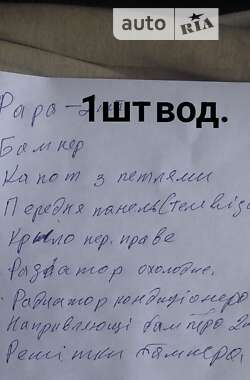 auto RIA
Фара - 1шт вод.
Бампер
Капот з петлями
Передня панель (телевіз
Крило пер. праве
Радіатор охолодне.
Радиатор кондиціонеро
Направляющі бампера 2ш
Решітки бампера